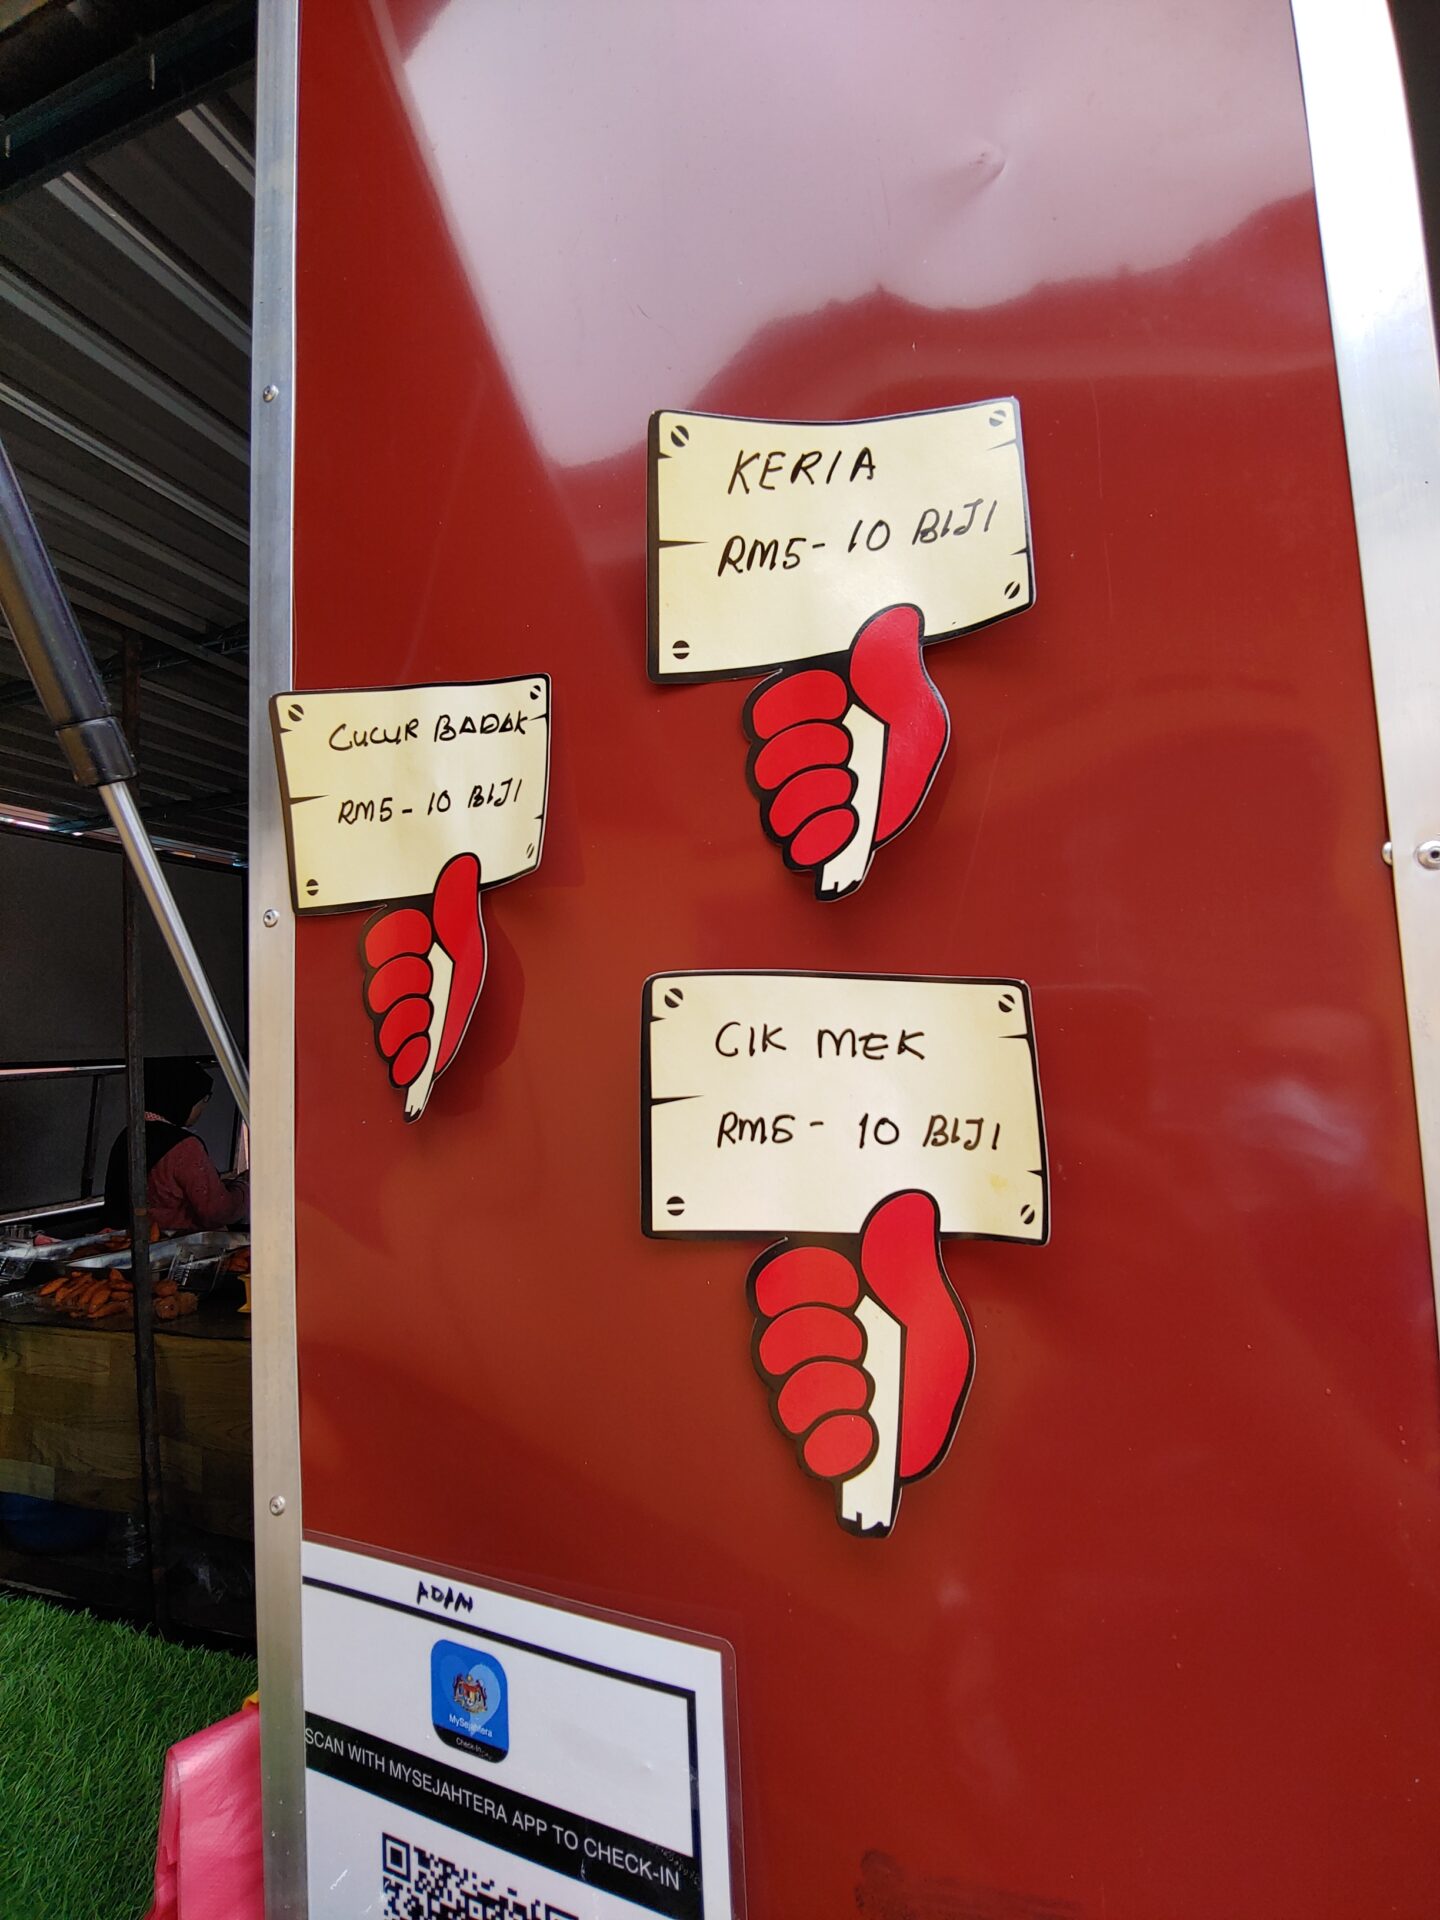 KERIA
RM5 - 10 BIJI
CUCUR BADAK
RM5 - 10 BIJI
CIK MEK
RM5 - 10 BIJI
ADAM
MySejahtera
Check-In
SCAN WITH MYSEJAHTERA APP TO CHECK-IN